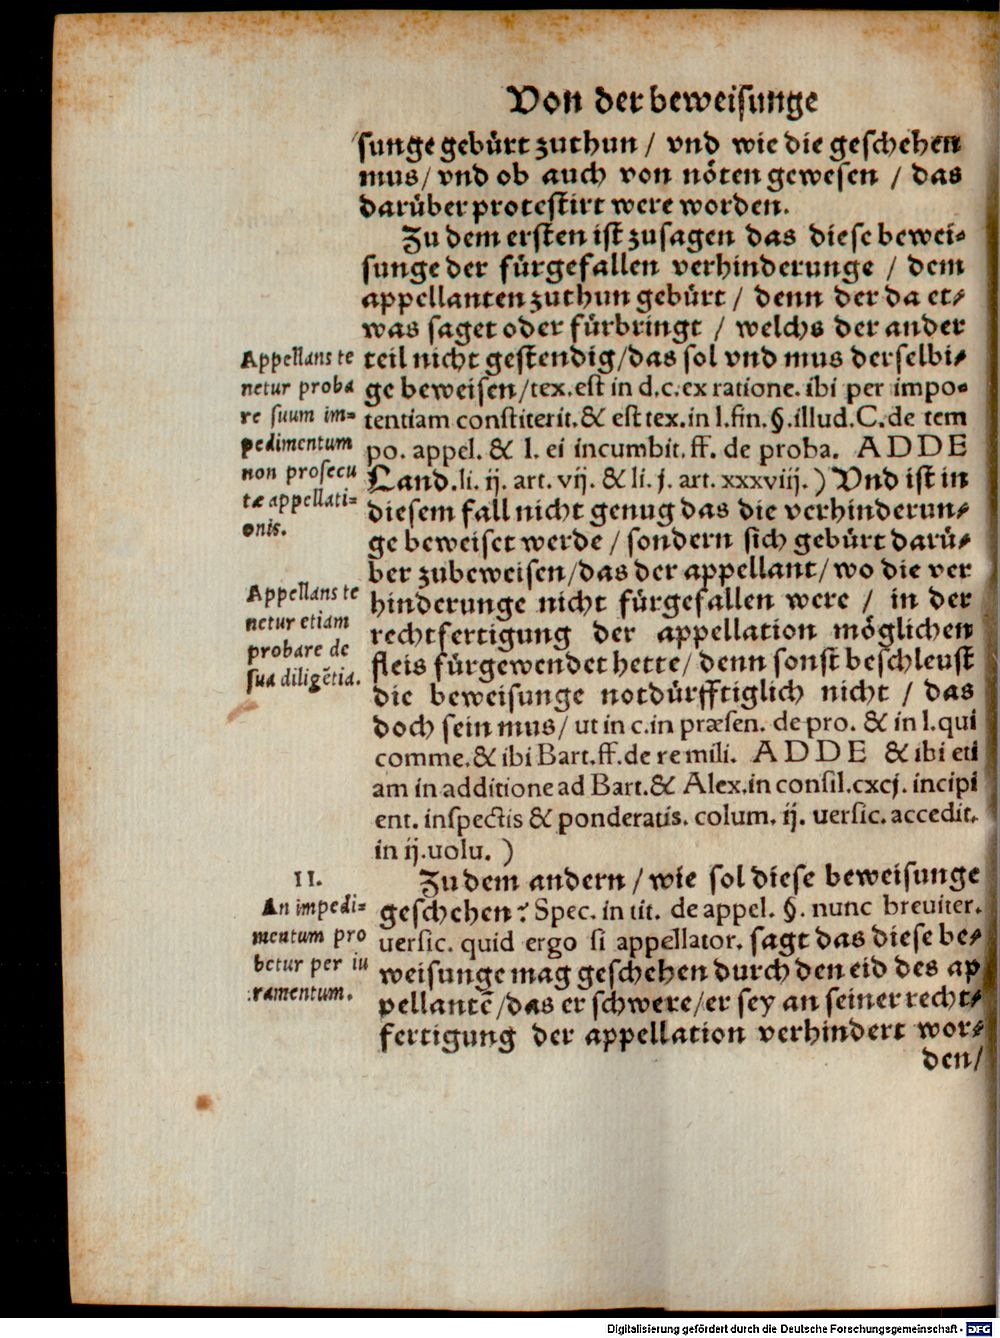 Von der beweisunge
sunge gebürt zuthun / vnd wie die geschehen
mus / vnd ob auch von nöten gewesen / das
darüber protestirt were worden.
Zu dem ersten ist zusagen das diese bewei-
sunge der fürgefallen verhinderunge / dem
appellanten zuthun gebürt / denn der da et-
was saget oder fürbringt / welchs der ander
teil nicht gestendig / das sol vnd mus derselbi-
ge beweisen / tex. est in d.c. ex ratione. ibi per impo-
tentiam constiterit. & est tex. in l. fin. §. illud. C. de tem
po. appel. & l. ei incumbit. ff. de proba. ADDE
Land. li. ij. art. vij. & li. j. art. xxxviij. ) Vnd ist in
diesem fall nicht genug das die verhinderun-
ge beweiset werde / sondern sich gebürt darü-
ber zubeweisen / das der appellant / wo die ver
hinderunge nicht fürgefallen were / in der
rechtfertigung der appellation möglichen
fleis fürgewendet hette / denn sonst beschleust
die beweisunge notdürfftiglich nicht / das
doch sein mus / ut in c. in præsen. de pro. & in l. qui
comme. & ibi Bart. ff. de re mili. ADDE & ibi eti
am in additione ad Bart. & Alex. in consil. cxcj. incipi
ent. inspectis & ponderatis. colum. ij. uersic. accedit.
in ij. uolu. )
Zu dem andern / wie sol diese beweisunge
geschehen ? Spec. in tit. de appel. §. nunc breuiter.
uersic. quid ergo si appellator. sagt das diese be-
weisunge mag geschehen durch den eid des ap
pellantē / das er schwere / er sey an seiner recht-
fertigung der appellation verhindert wor-
den /
Appellans te
netur proba
re suum im-
pedimentum
non prosecu
tæ appellati-
onis.
Appellans te
netur etiam
probare de
sua diligētia.
II.
An impedi-
mentum pro
betur per iu
ramentum.
Digitalisierung gefördert durch die Deutsche Forschungsgemeinschaft - DFG